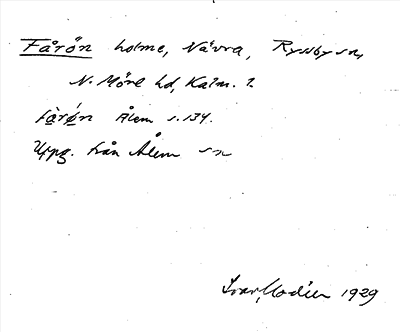 Fårön holme, Návra, Ryssby sn,
N. Möre hd, Kalm. l.
fårön Ålem s. 134.
Uppg. från Ålem sn
Ivar Modéer 1929